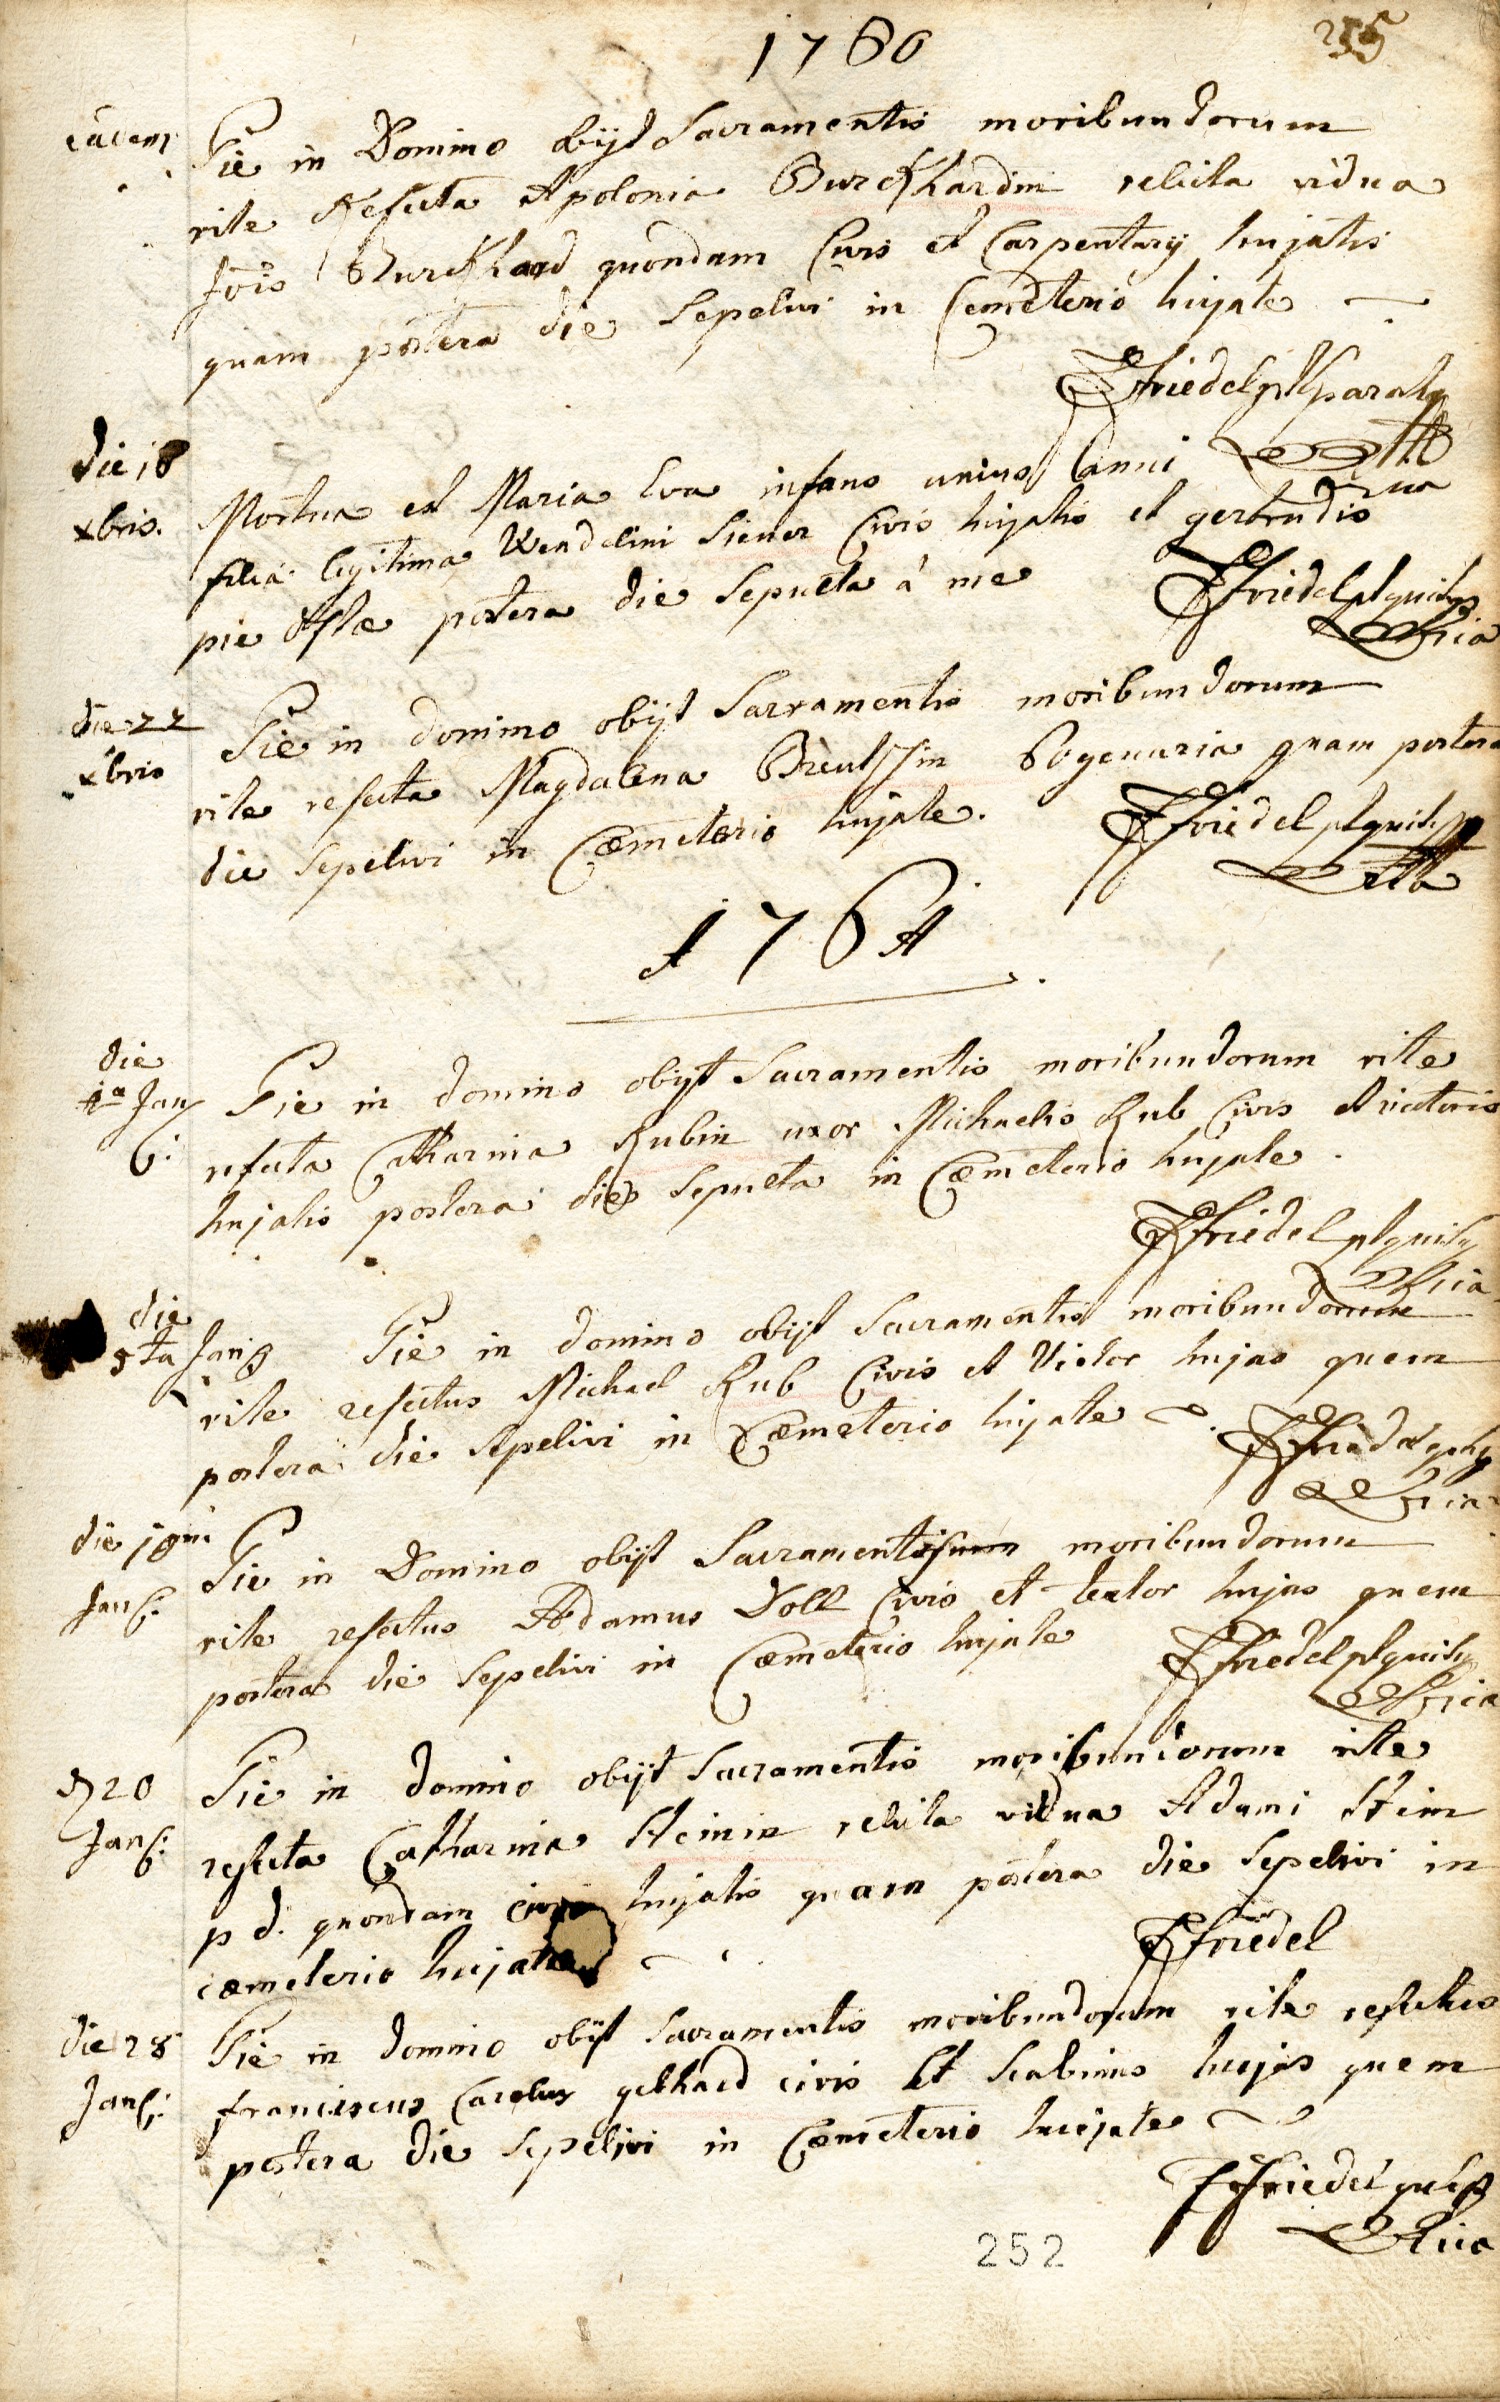 1760
255
eadem
Pie in Domino obijt Sacramentis moribundorum
rite Refecta Apolonia Burckhardin relicta vidua
Jois Burckhard quondam Civis et Carpentarij hujatis
quam postera die Sepelivi in Cemeterio hujate
Friedel
die 18
xbris.
Mortua est Maria Eva infans unius anni
filia legitima Wendelini Siener Civis hujatis et gertrudis
postera die Sepulta à me
Friedel
die 22
xbris
Pie in domino obijt Sacramentis moribundorum
rite refecta Magdalena quam postera
die Sepelivi in Cœmeterio hujate.
Friedel
1761
die
1a Jan
Pie in domino obijt Sacramentis moribundorum rite
refecta Catharina Rubin uxor Michaelis Rub Civis et victoris
hujatis postera die Sepulta in Cœmeterio hujate.
Friedel
die
5ta Jan
Pie in domino obijt Sacramentis moribundorum
rite refectus Michael Rub Civis et Victor hujas quem
postera die Sepelivi in Cœmeterio hujate
Friedel
die
Jan
Pie in Domino obijt Sacramentis moribundorum
rite refectus Adamus Doll Civis et textor hujas quem
postera die Sepelivi in Cœmeterio hujate
Friedel
20
Jan
Pie in domino obijt Sacramentis moribundorum rite
refecta Catharina Steinin relicta vidua Adami Stein
p d. quondam civis hujatis quam postera die Sepelivi in
cœmeterio hujate
Friedel
die 28
Jan
Pie in domino obijt Sacramentis moribundorum rite refectus
franciscus Carolus gebhard civis et Scabinus hujas quem
postera die Sepelivi in Cœmeterio hujate
Friedel
252